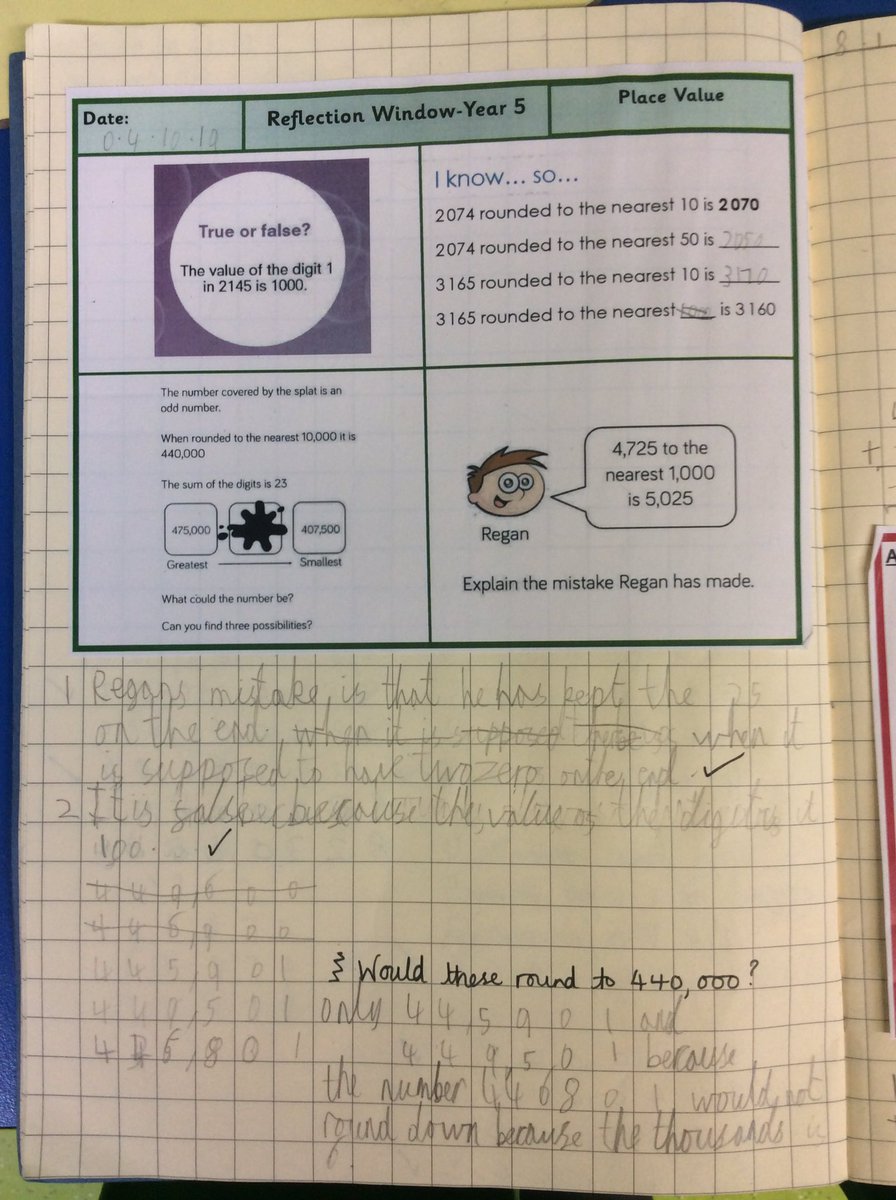 Date:
0.4.10.19
Reflection Window-Year 5
Place Value
True or false?
The value of the digit 1
in 2145 is 1000.
I know... so...
2074 rounded to the nearest 10 is 2070
2074 rounded to the nearest 50 is 2050
3165 rounded to the nearest 10 is 3170
3165 rounded to the nearest is 3160
The number covered by the splat is an
odd number.
When rounded to the nearest 10,000 it is
440,000
The sum of the digits is 23
475,000
407,500
Greatest
Smallest
What could the number be?
Can you find three possibilities?
4,725 to the
nearest 1,000
is 5,025
Regan
Explain the mistake Regan has made.
1 Regans mistake is that he has kept the 25
on the end, when it is supposed when it
is supposed to have two zero on the end.
2 It is false because the value of the digit is
100.
449,600
446,900
445,901
⸾ Would these round to 440,000?
only 44,5901 and
449,501 because
801
the number 446801 would not
round down because the thousands is
6.